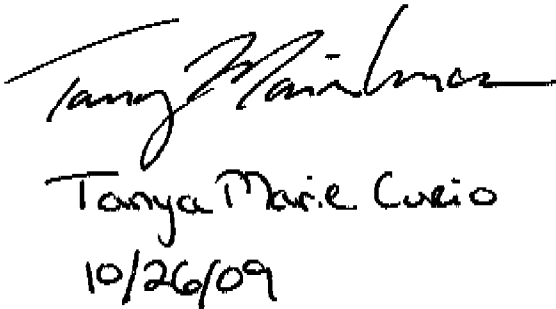 Tanya Marie Curio
Tanya Marie Curio
10/26/09